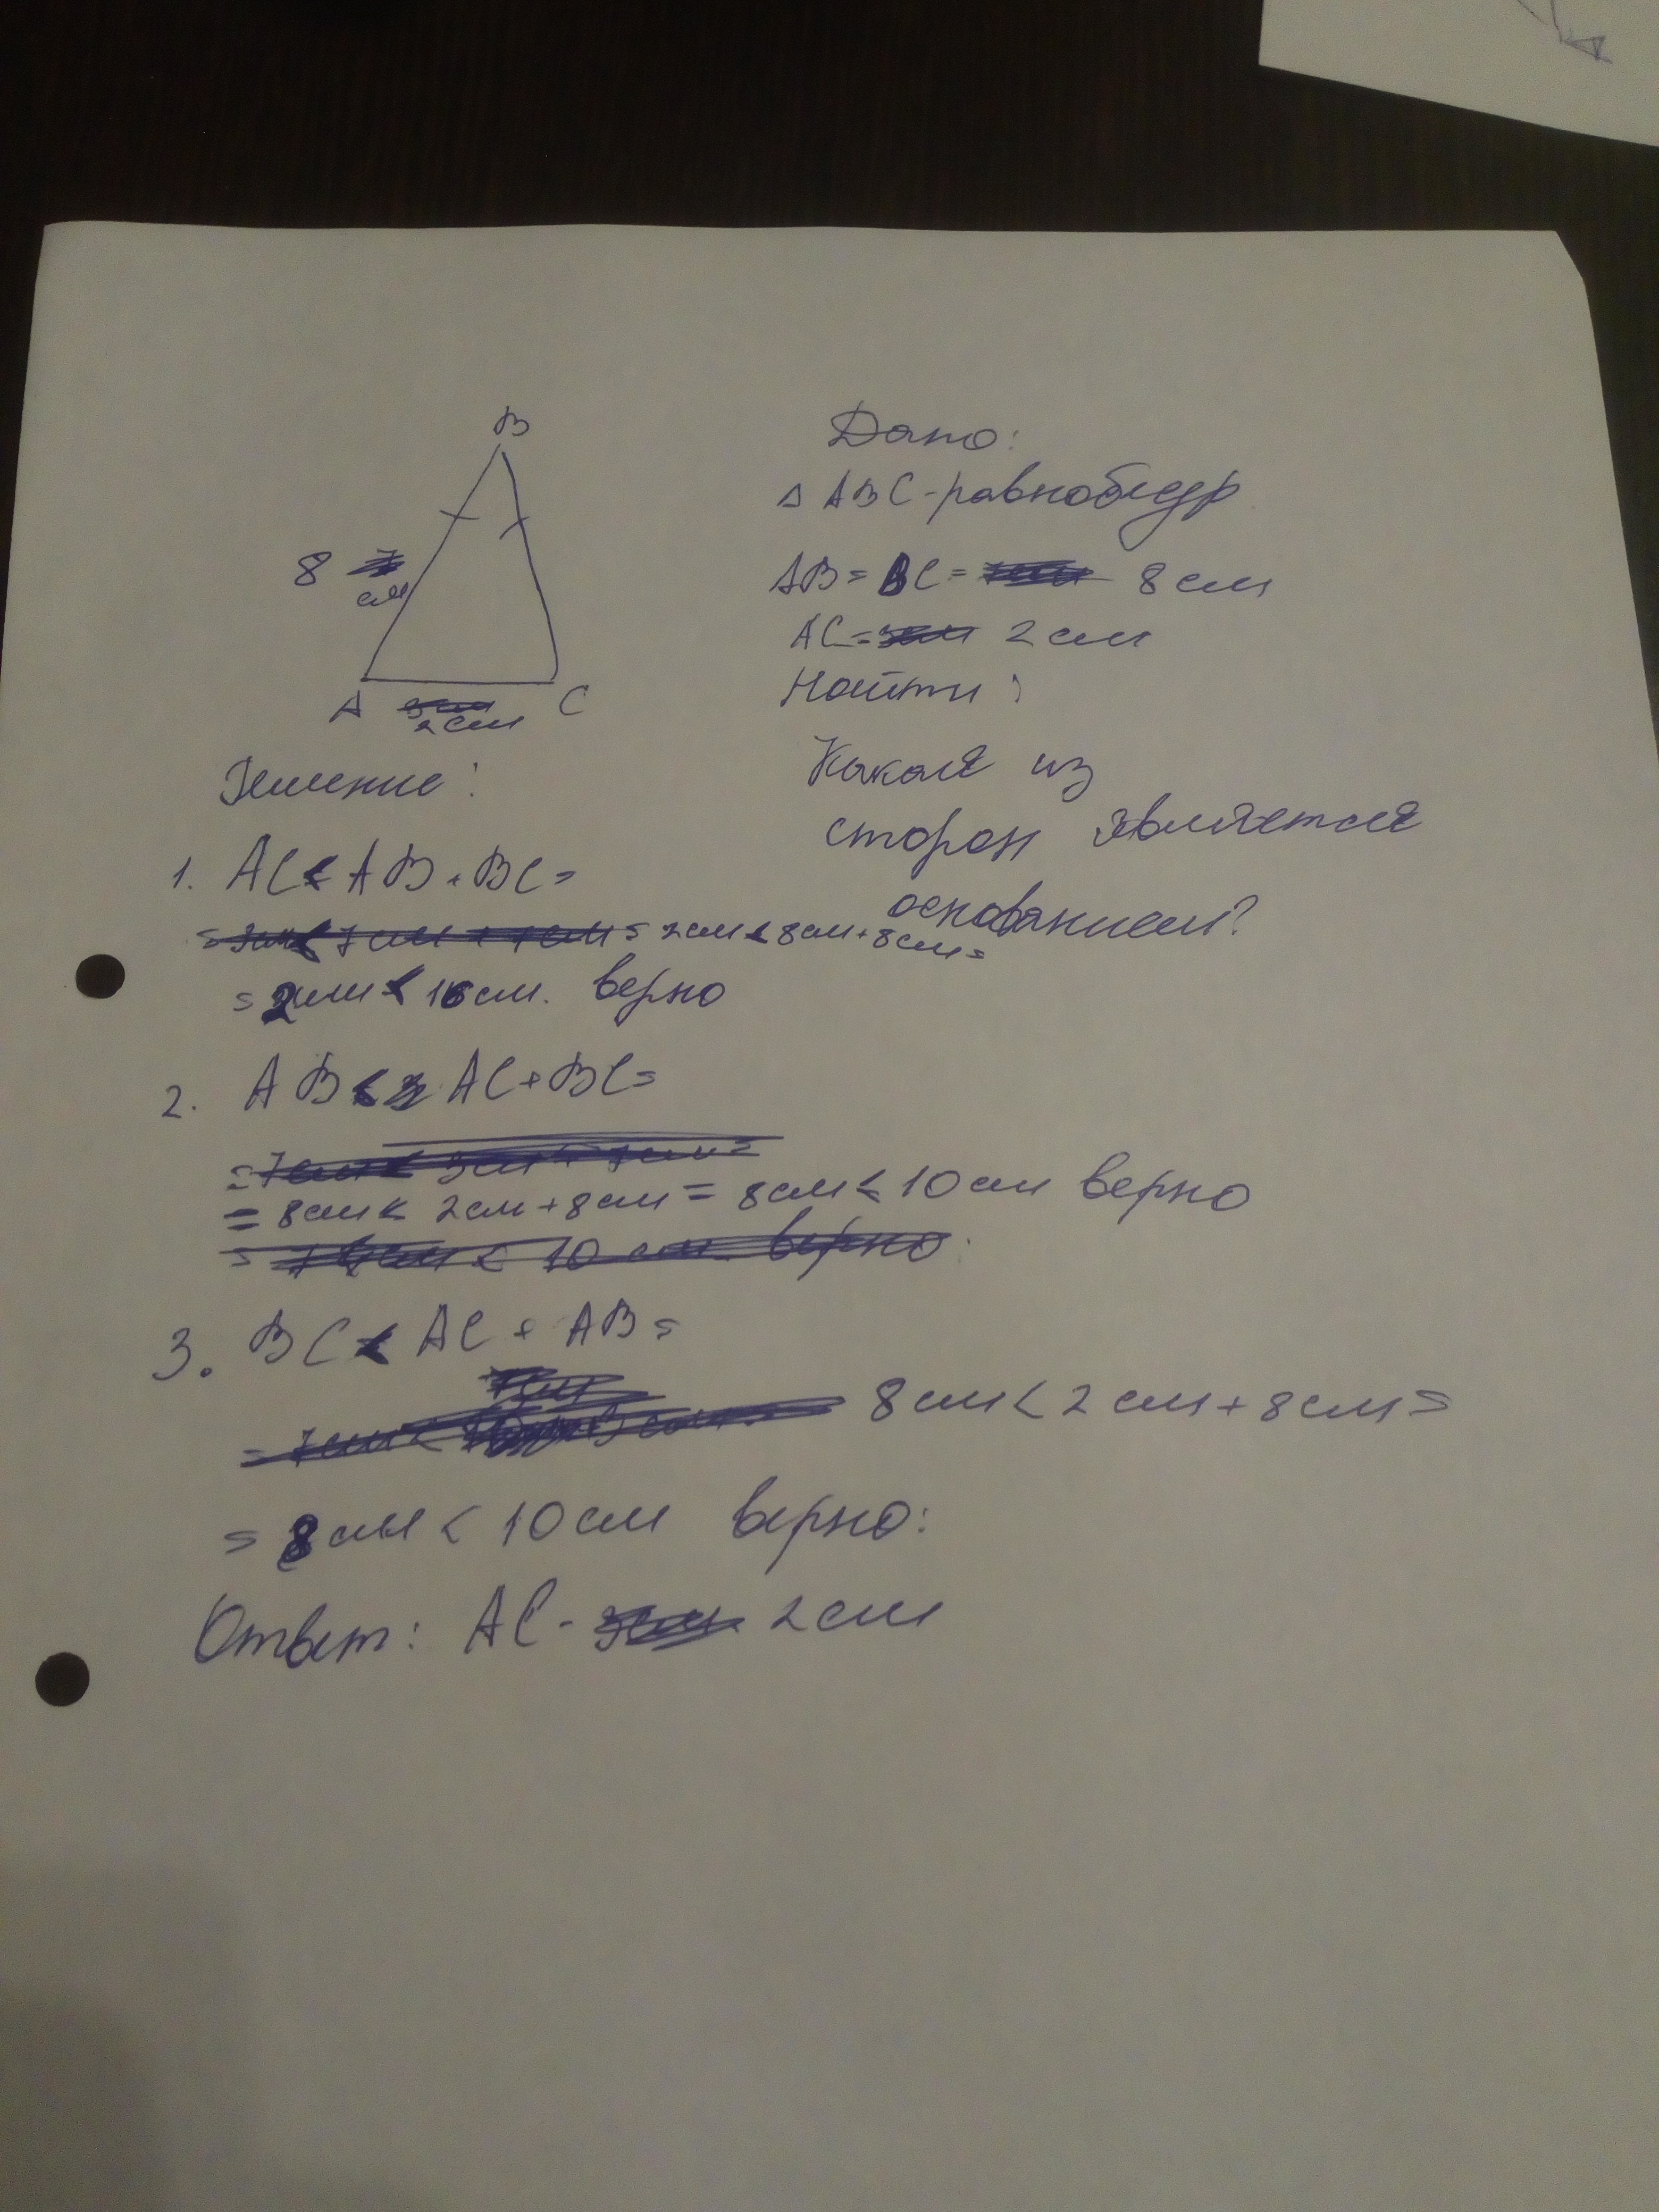 B
8
см
A
2 см
C
Дано:
△ ABC - равнобедр
AB = BC = 8 см
AC = 2 см
Найти:
Какая из
сторон является
основанием?
Решение:
1. AC < AB + BC =
= 2см < 8см + 8см =
= 2см < 16см. верно
2. AB < AC + BC =
= 8см < 2см + 8см = 8см < 10см верно
3. BC < AC + AB =
8см < 2см + 8см =
= 8см < 10см верно:
Ответ: AC - 2см